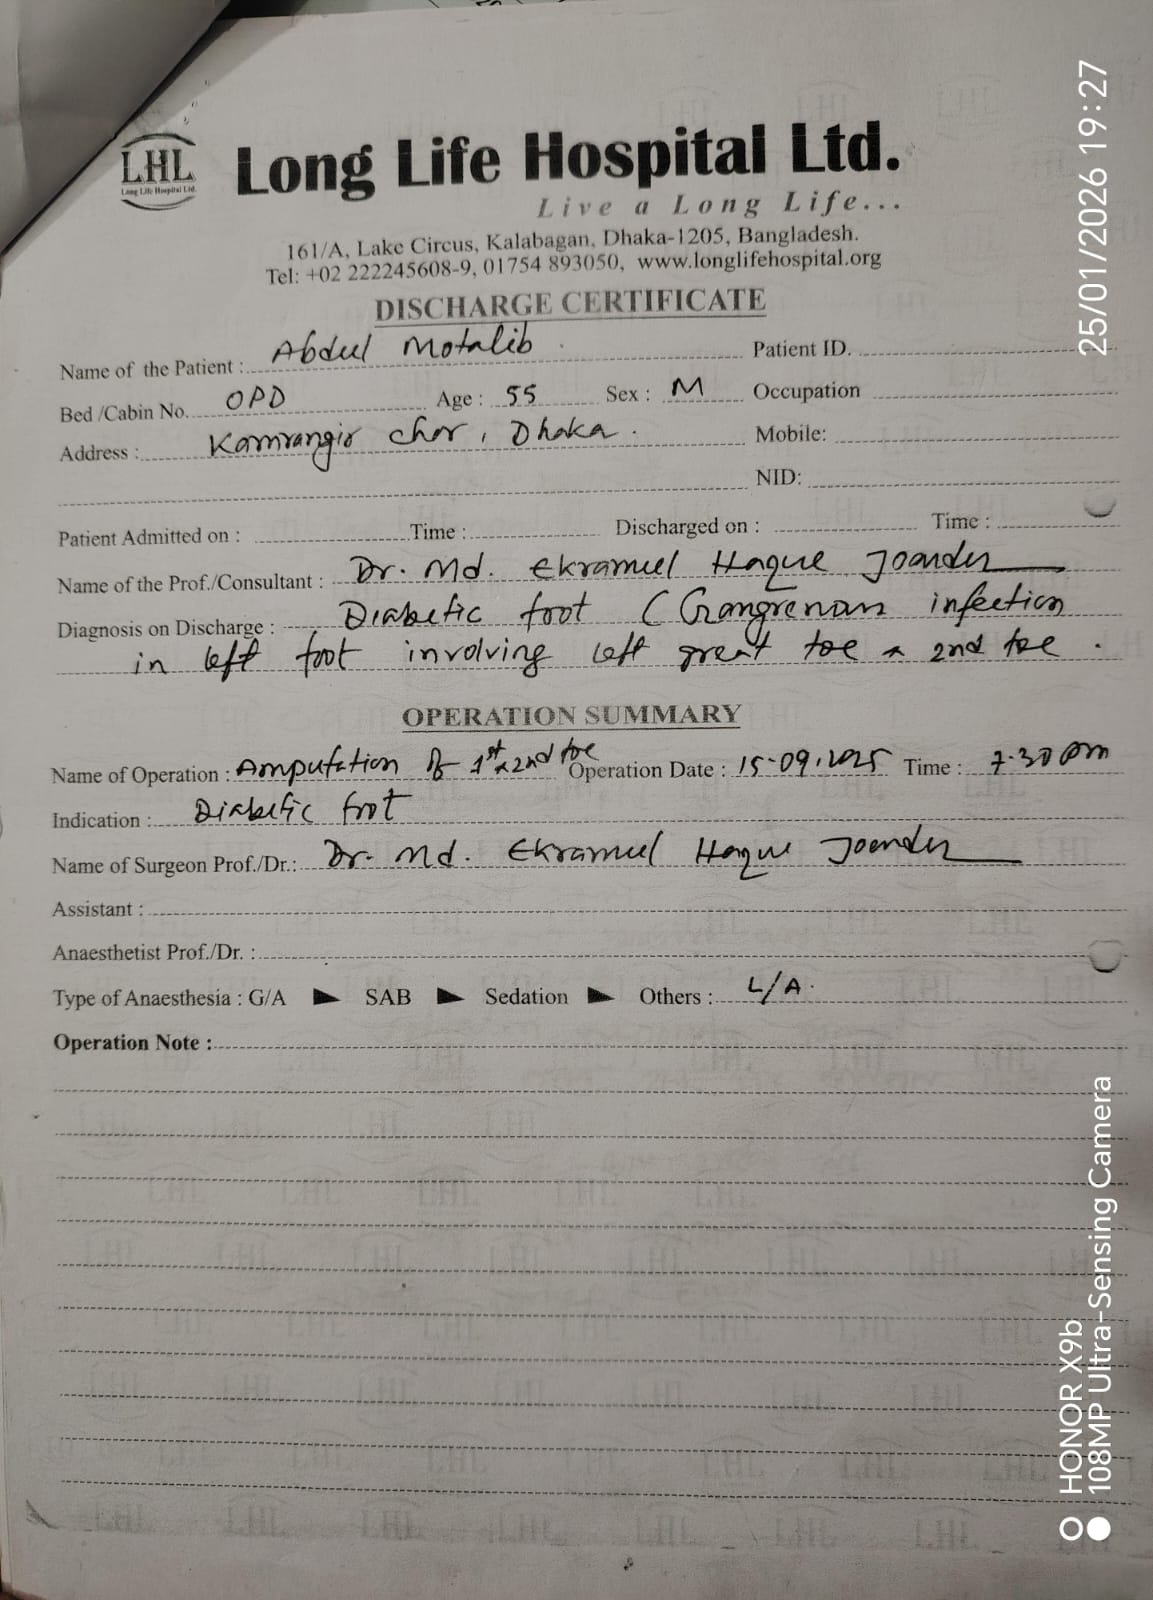 LHL
Long Life Hospital Ltd.
Long Life Hospital Ltd.
Live a Long Life...
161/A, Lake Circus, Kalabagan, Dhaka-1205, Bangladesh.
Tel: +02 222245608-9, 01754 893050, www.longlifehospital.org
DISCHARGE CERTIFICATE
Name of the Patient : Abdul Motalib Patient ID.
Bed /Cabin No. OPD Age : 55 Sex : M Occupation
Address : Kamrangir char, Dhaka. Mobile:
NID:
Patient Admitted on : Time : Discharged on : Time :
Name of the Prof./Consultant : Dr. Md. Ekramul Haque Joarder
Diagnosis on Discharge : Diabetic foot (Gangrenous infection
in left foot involving left great toe & 2nd toe.
OPERATION SUMMARY
Name of Operation : Amputation of 1st & 2nd toe Operation Date : 15-09.2025 Time : 7.30 pm
Indication : Diabetic foot
Name of Surgeon Prof./Dr.: Dr. Md. Ekramul Haque Joarder
Assistant :
Anaesthetist Prof./Dr. :
Type of Anaesthesia : G/A SAB Sedation Others : L/A.
Operation Note :
25/01/2026 19:27
HONOR X9b
108MP Ultra-Sensing Camera